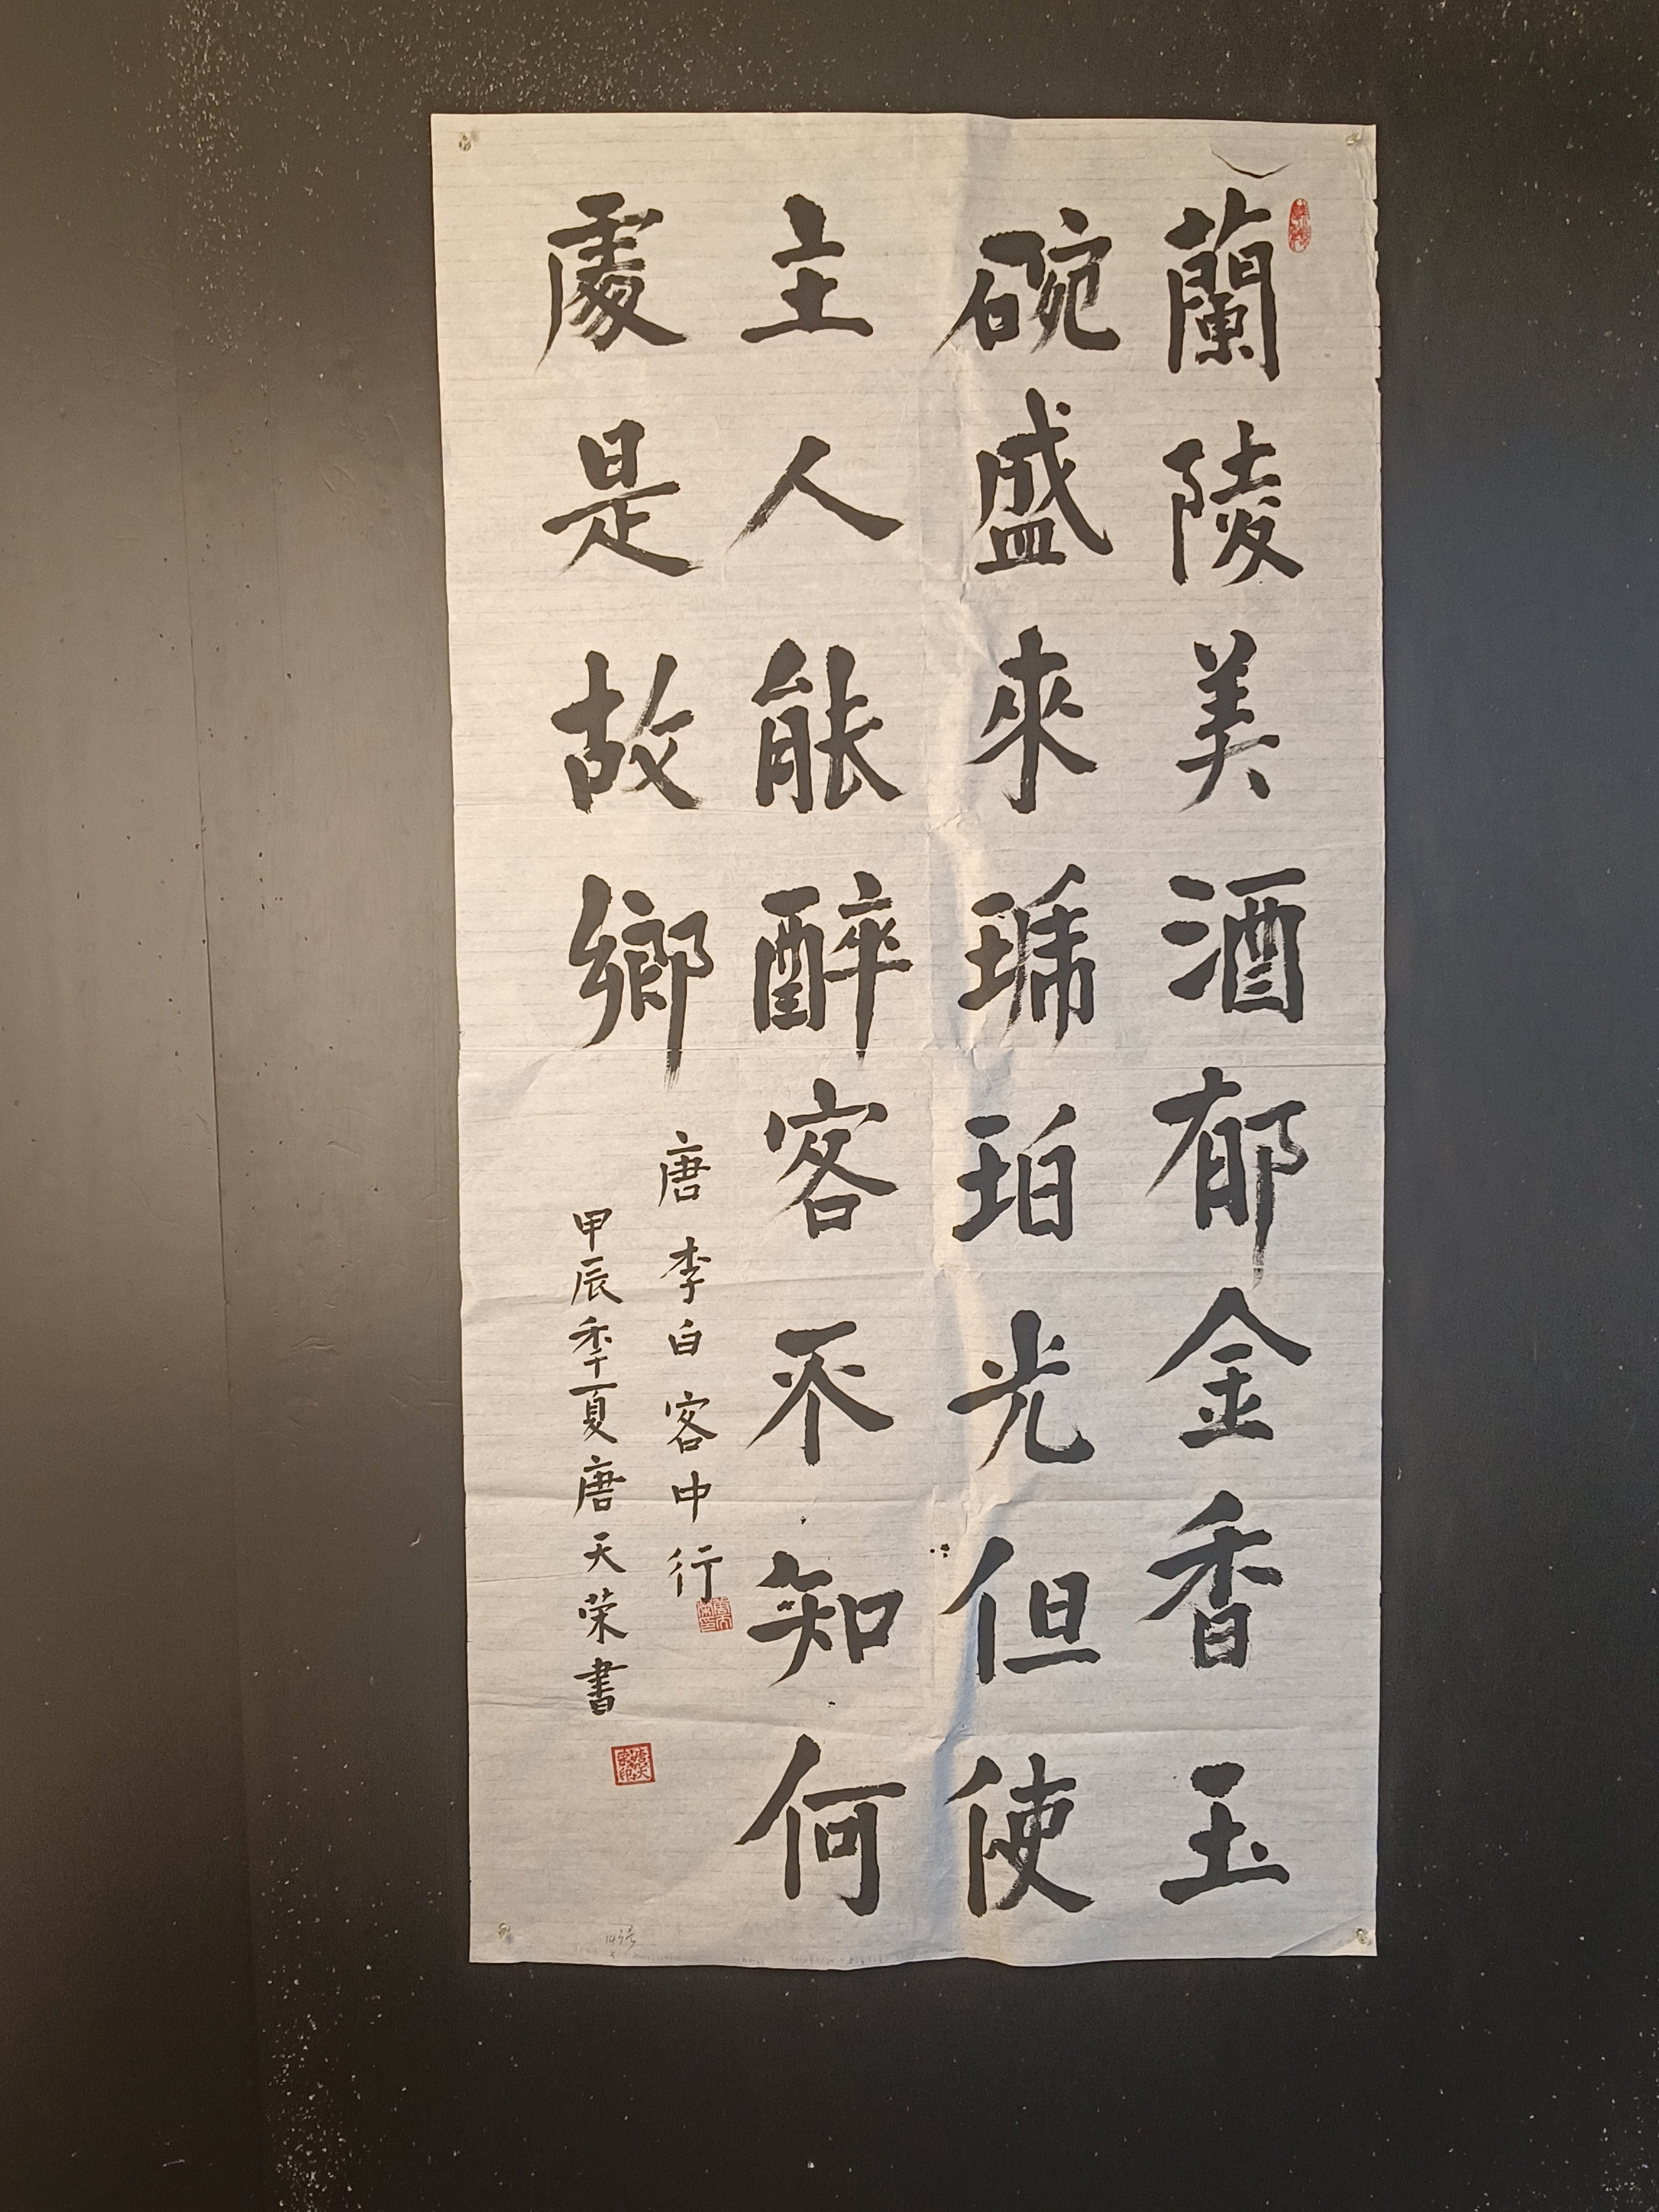 蘭陵美酒郁金香玉
碗盛來琥珀光但使
主人能醉客不知何
處是故鄉
唐李白客中行
甲辰秊夏唐天荣書